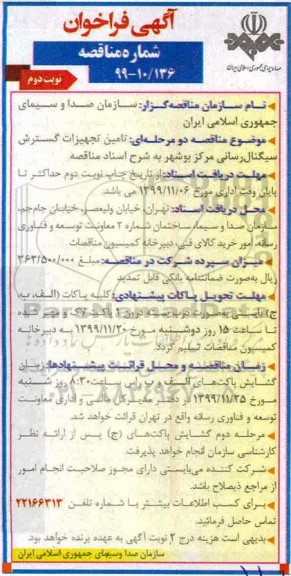 آگهی فراخوان
شماره مناقصه
۹۹-۱۰/۱۳۶
نوبت دوم
صدا و سیمای جمهوری اسلامی ایران
نام سازمان مناقصه‌گزار: سازمان صدا و سیمای
جمهوری اسلامی ایران
موضوع مناقصه دو مرحله‌ای: تامین تجهیزات گسترش
سیگنال‌رسانی مرکز بوشهر به شرح اسناد مناقصه
مهلت دریافت اسناد: از تاریخ چاپ نوبت دوم حداکثر تا
پایان وقت اداری مورخ ۱۳۹۹/۱۱/۰۶ می باشد.
محل دریافت اسناد: تهران، خیابان ولیعصر، خیابان جام‌جم،
سازمان صدا و سیما، ساختمان شماره ۲ معاونت توسعه و فناوری
رسانه، امور خرید کالای فنی، دبیرخانه کمیسیون مناقصات
میزان سپرده شرکت در مناقصه: مبلغ ۳۶۲/۵۰۰/۰۰۰
ریال به‌صورت ضمانتنامه بانکی قابل تمدید
مهلت تحویل پاکات پیشنهادی: کلیه پاکات (الف، ب،
ج) بایستی به‌صورت در بسته
تا ساعت ۱۵ روز دوشنبه مورخ ۱۳۹۹/۱۱/۲۰ به دبیرخانه
کمیسیون مناقصات تسلیم گردد.
زمان مناقصه و محل قرائت پیشنهادها: زمان
گشایش پاکت‌های الف و ب راس ساعت ۸:۳۰ روز شنبه
مورخ ۱۳۹۹/۱۱/۲۵ در دفتر مدیرکل مالی و اداری معاونت
توسعه و فناوری رسانه واقع در تهران قرائت خواهد شد.
مرحله دوم گشایش پاکت‌های (ج) پس از ارائه نظر
کارشناسی سازمان انجام خواهد پذیرفت.
شرکت کننده می‌بایستی دارای مجوز صلاحیت انجام امور
از مراجع ذیصلاح باشد.
برای کسب اطلاعات بیشتر با شماره تلفن ۲۲۱۶۶۳۱۳
تماس حاصل فرمائید.
بدیهی است هزینه درج ۲ نوبت آگهی به عهده برنده خواهد بود.
سازمان صدا وسیمای جمهوری اسلامی ایران